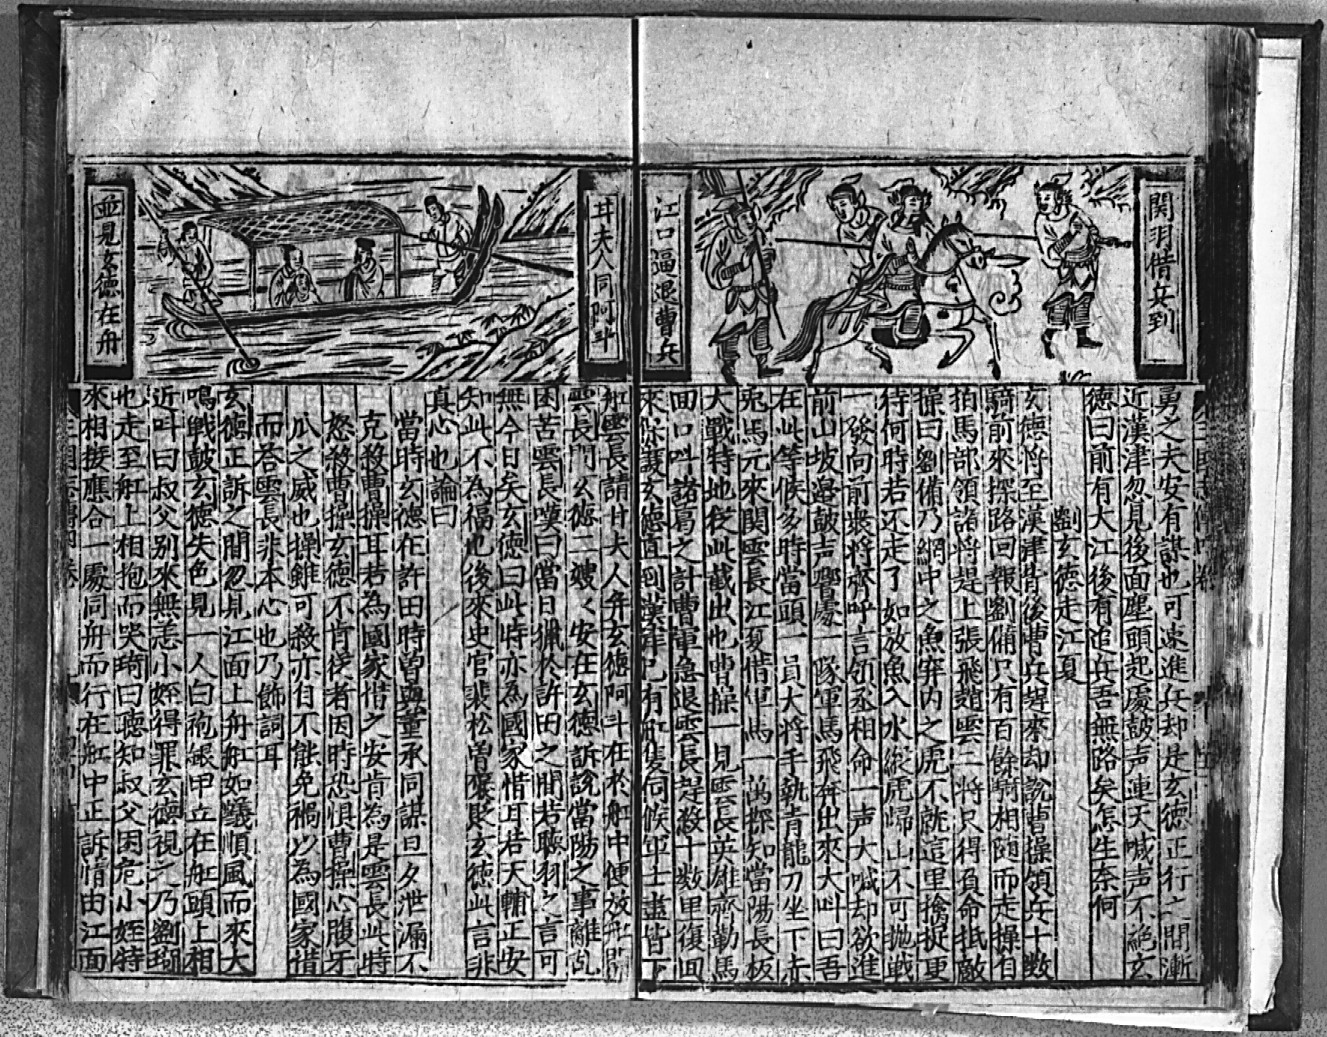 関羽借兵到
江口逼退曹兵
舅之夫安有謀也可速進兵却是玄德正行之間漸
近漢津忽見後面塵頭起處鼓声連天喊声不絶玄
德曰前有大江後有追兵吾無路矣怎生奈何
劉玄德走江夏
玄德將至漢津背後曹兵趕來却說曹操領兵十数
騎前來探路回報劉備只有百餘騎相随而走操自
拍馬部領諸将趕上張飛趙雲二将只得負命抵敵
操曰劉備乃網中之魚穽内之虎不就這里擒捉更
待何時若还走了如放魚入水縱虎歸山不可抛戰
一發向前衆将齊呼言領丞相命一声大喊却欲進
前山坡邉鼓声響處一隊軍馬飛奔出來大叫曰吾
在此等候多時當頭一員大将手執青龍刀坐下赤
兎馬元來関雲長江夏借軍馬一萬探知當陽長板
大戰特地從此截出也曹操一見雲長英雄齊勒馬
回口叫諸葛之計曹軍急退雲長趕殺十数里復回
來保護玄德直到漢津已有舡隻伺候軍士盡皆下
甘夫人同阿斗
並見玄德在舟
舡雲長請甘夫人弁玄德阿斗在於舡中便放舟開
雲長問玄德二嫂〻安在玄德訴說當陽之事離乱
困苦雲長嘆曰當日猟於許田之間若聽羽之言可
無今日矣玄德曰此時亦為國家惜耳若天輔正安
知此不為福也後來史官裴松曽發貶玄徳此言非
真心也論曰
當時玄德在許田時曽與董承同謀旦夕泄漏不
克殺曹操耳若為國家惜之安肯為是雲長此特
怒殺曹操玄德不肯從者因時恐惧曹操心腹牙
爪之威也操雖可殺亦自不能免禍以為國家惜
而荅雲長非本心也乃餙詞耳
玄德正訴之間忽見江面上舟舡如蟻順風而來大
鳴戰鼓玄德失色見一人白袍銀甲立在舡頭上相
近叫曰叔父別來無恙小姪得罪玄德視之乃劉琦
也走至舡上相抱而哭琦曰聴知叔父困危小姪特
來相接應合一處同舟而行在舡中正訴情由江面